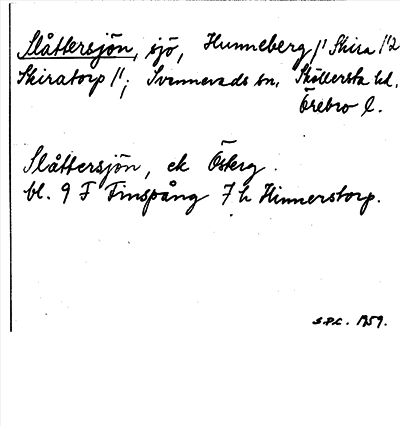 Slåttersjön, sjö, Hunneberg 1/1 Skira 1/2
Skiratorp 1/1; Svennevads sn. Sköllersta hd.
Örebro l.
Slåttersjön, ek Österg.
bl. 9 F Finspång 7 h Hinnerstorp.
S.P.C. 1959.